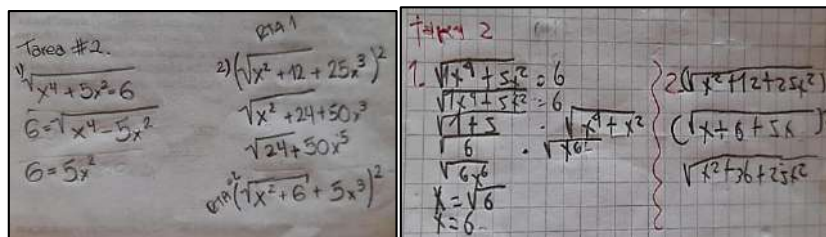 Tarea #2.
1) √x⁴+5x²=6
6=√x⁴-5x²
6=5x²
RTA 1
2) (√x²+12+25x³)²
√x²+24+50x³
√24+50x⁵
RTA 2 (√x²+6+5x³)²
Tarea 2
1. √1x⁴+5x²=6
√1x⁴+5x²=6
√1+5 · √x⁴+x²
√6 · √x⁶
√6x⁶
x=√6
x=6
2(√x²+12+25x²)
(√x+6+5x)
√x²+36+25x²